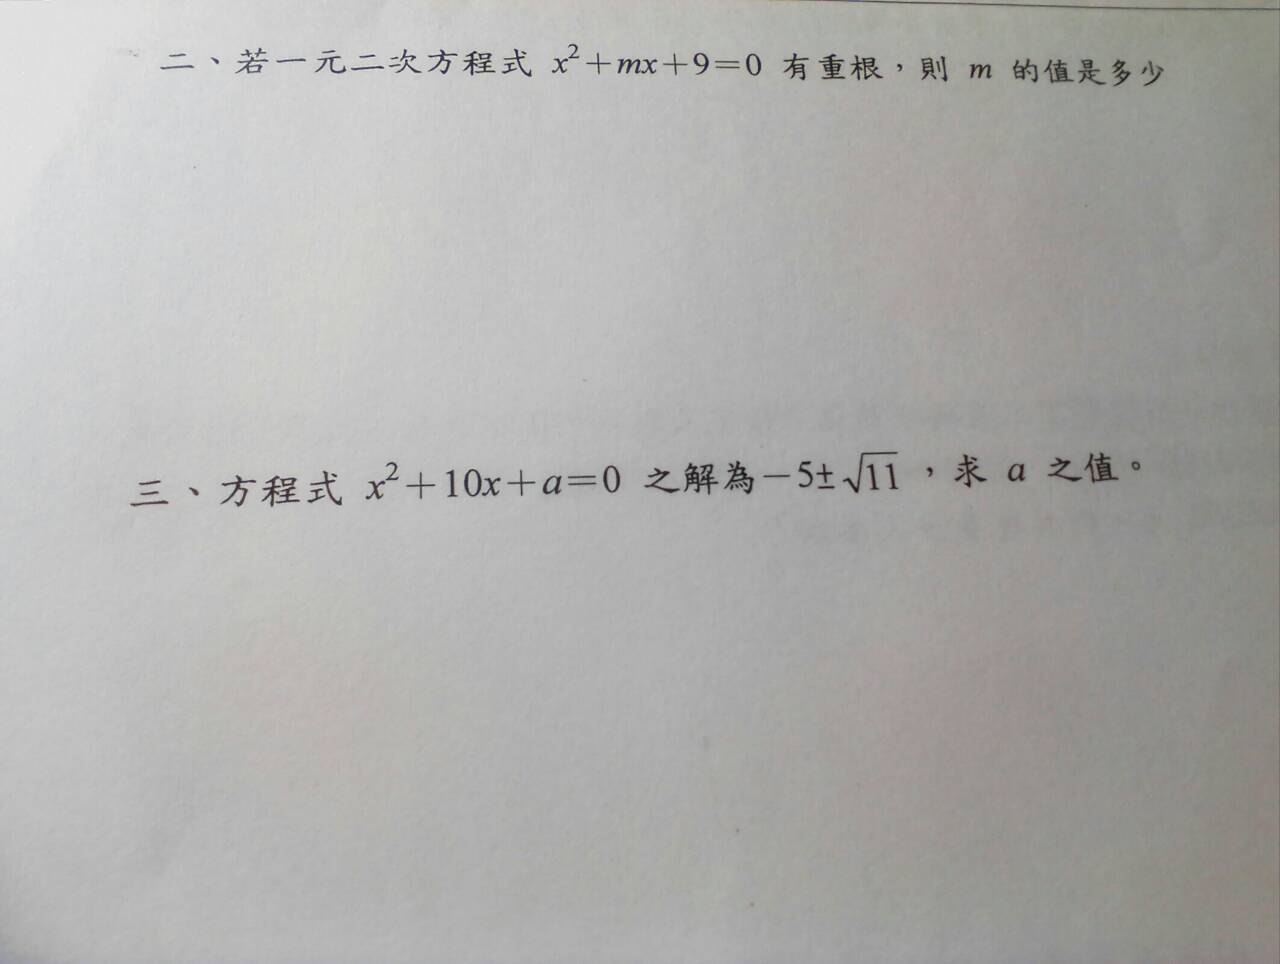 二、若一元二次方程式 x²+mx+9=0 有重根，則 m 的值是多少
三、方程式 x²+10x+a=0 之解為−5±√11，求 a 之值。